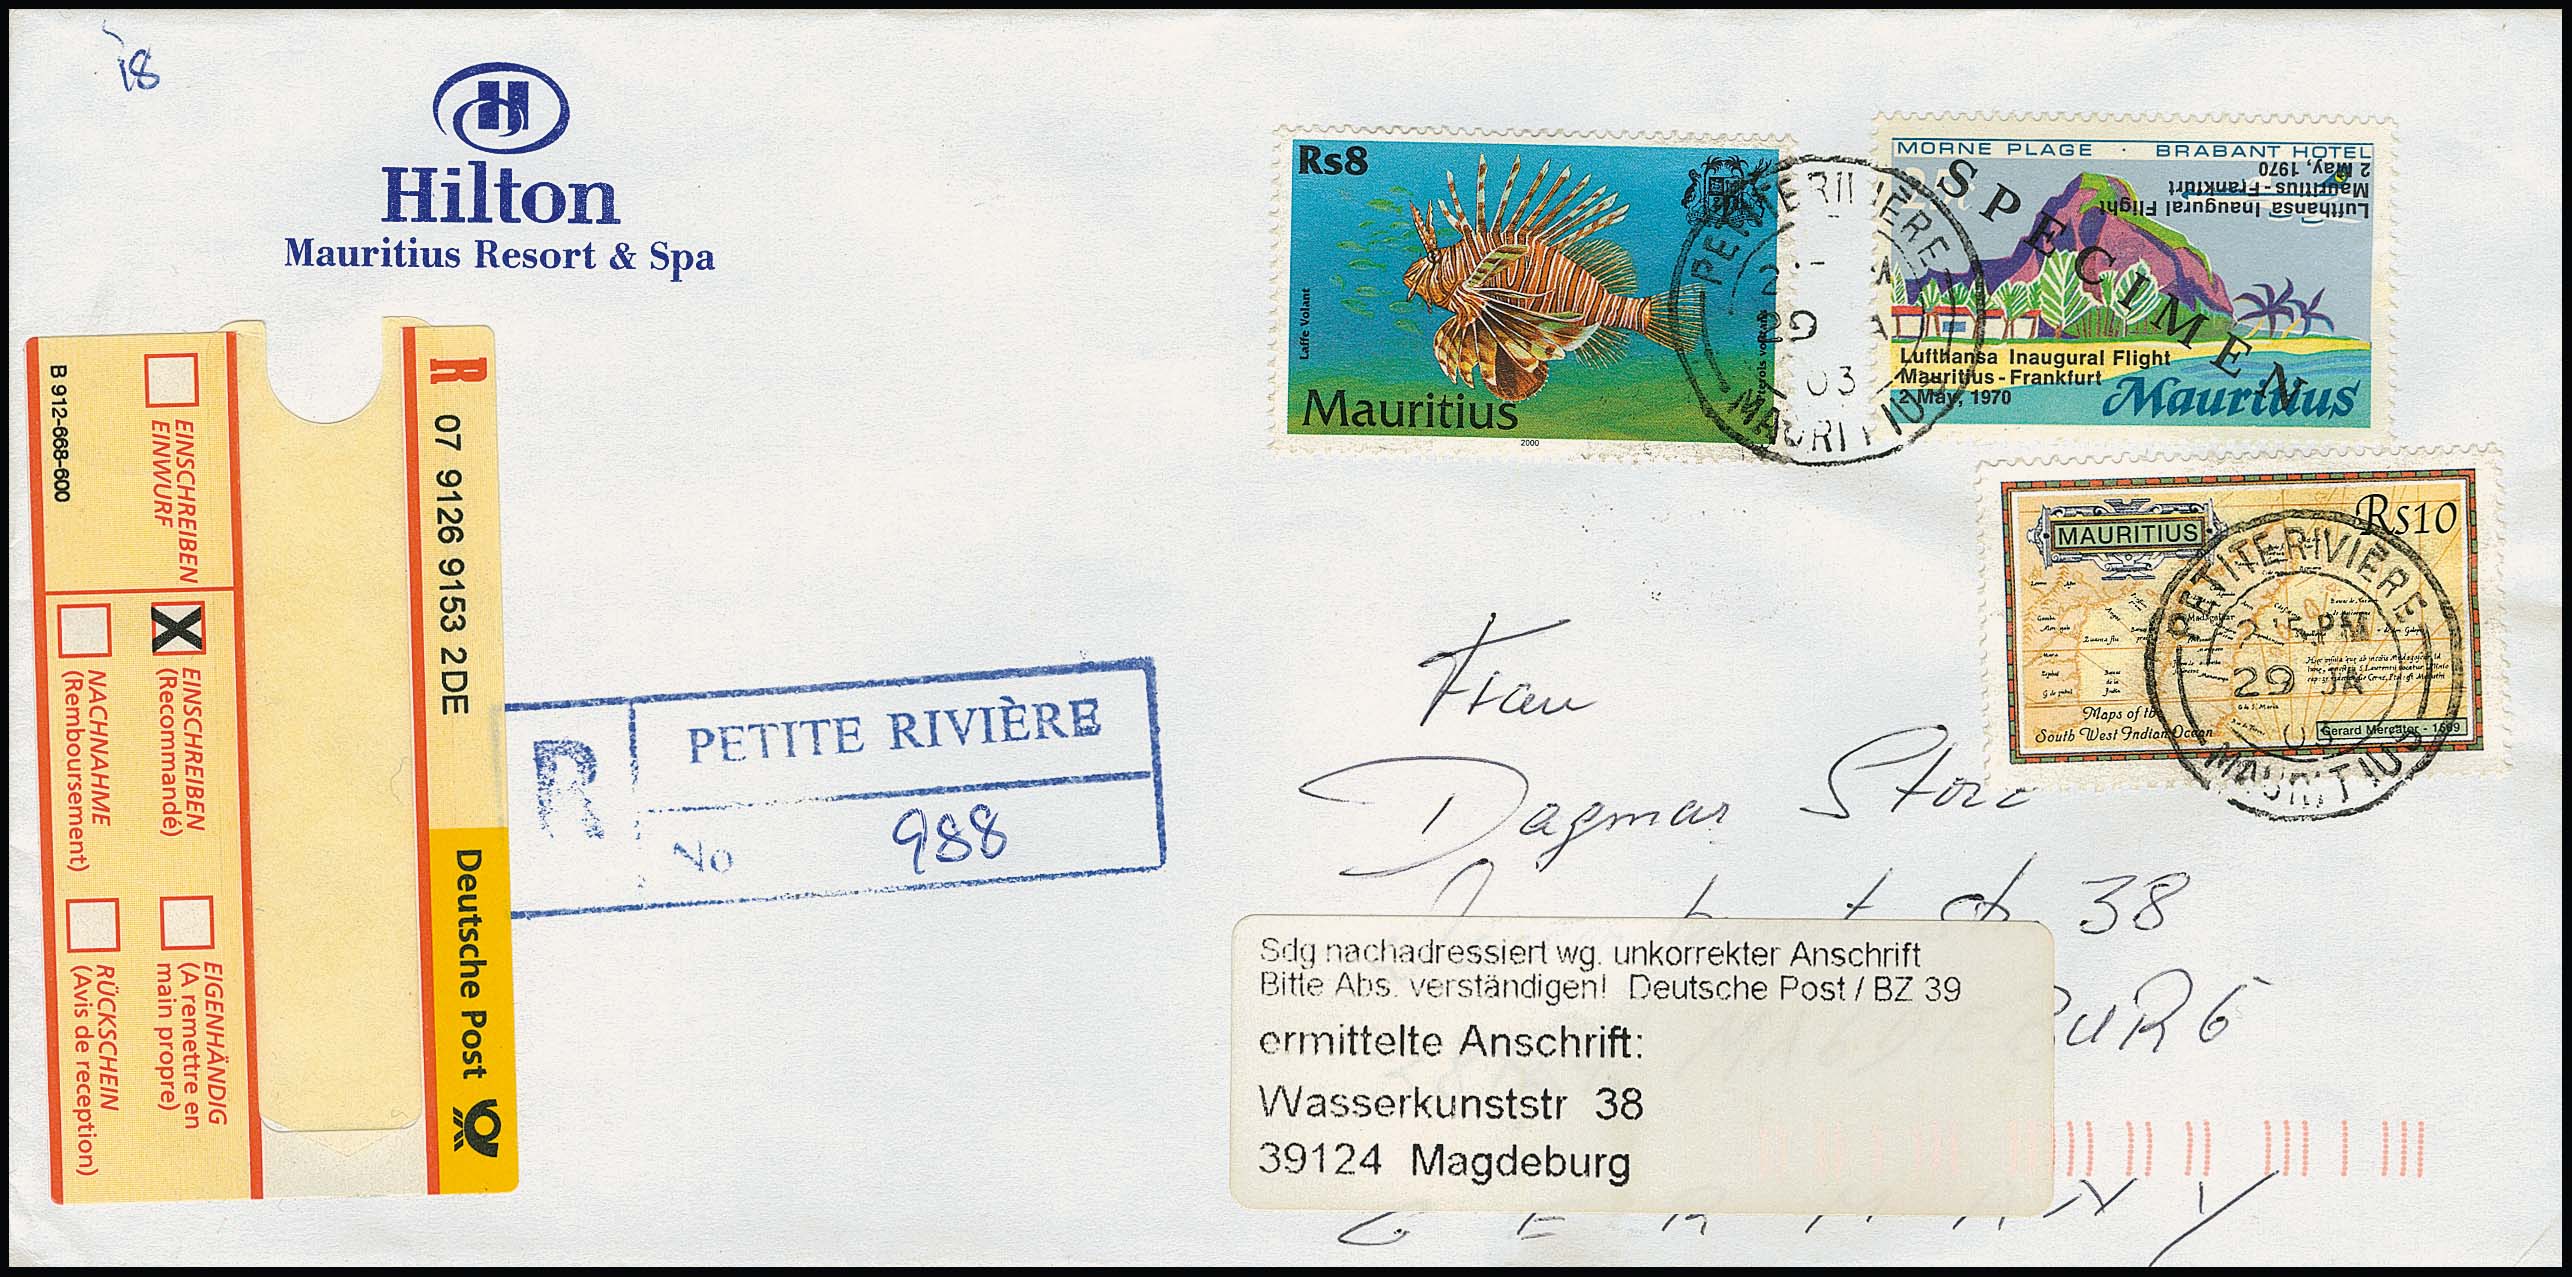 18
H
Hilton
Mauritius Resort & Spa
B 912-668-600
EINSCHREIBEN
EINWURF
EINSCHREIBEN
(Recommandé)
NACHNAHME
(Remboursement)
EIGENHÄNDIG
(A remettre en
main propre)
RÜCKSCHEIN
(Avis de reception)
R 07 9126 9153 2DE
Deutsche Post
R
PETITE RIVIÈRE
No 988
Rs8
Laffe Volant
Pterois volitans
Mauritius
2000
PETITE RIVIERE
MAURITIUS
MORNE PLAGE · BRABANT HOTEL
Lufthansa Inaugural Flight
Mauritius-Frankfurt
2 May, 1970
SPECIMEN
Lufthansa Inaugural Flight
Mauritius-Frankfurt
2 May, 1970
Mauritius
MAURITIUS
Rs10
Maps of the
South West Indian Ocean
Gerard Mercator - 1569
PETITE RIVIERE
PM
29 JA
03
MAURITIUS
Frau
Dagmar
38
BURG
Sdg nachadressiert wg. unkorrekter Anschrift
Bitte Abs. verständigen! Deutsche Post / BZ 39
ermittelte Anschrift:
Wasserkunststr 38
39124 Magdeburg
GERMANY